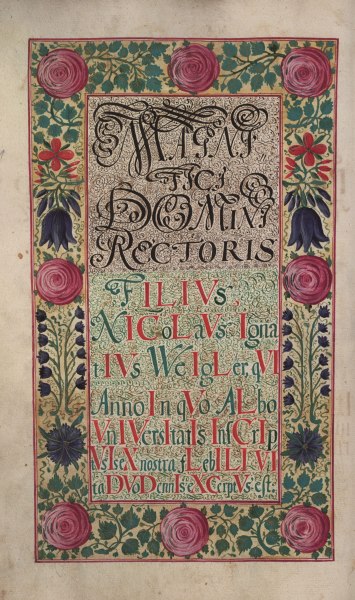 MAGNI
FICI
DOMINI
RECTORIS
FILIVs
NICoLaVs Igna
tIVs WeIgLer qVI
Anno In qVo ALbo
VnIVersItatIs InsCrIp
tVs Is eX nostra fLebILI VI
ta DVoDennIs eXCerptVs est.